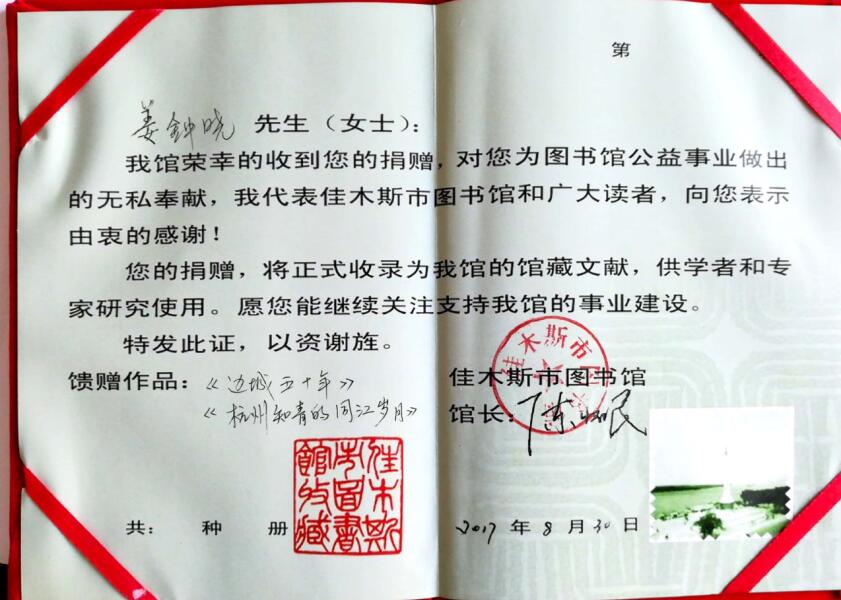 第
姜钟晓 先生（女士）：
我馆荣幸的收到您的捐赠，对您为图书馆公益事业做出
的无私奉献，我代表佳木斯市图书馆和广大读者，向您表示
由衷的感谢！
您的捐赠，将正式收录为我馆的馆藏文献，供学者和专
家研究使用。愿您能继续关注支持我馆的事业建设。
特发此证，以资谢旌。
馈赠作品：《边城五十年》
《杭州知青的同江岁月》
佳木斯市图书馆
馆长：陈
佳木斯市图书馆收藏
共： 种 册
2017 年 8 月 30 日